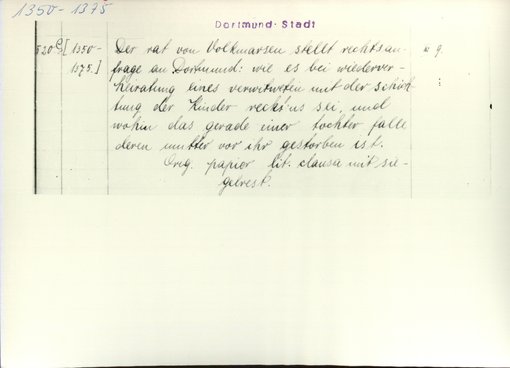 1350-1375
Dortmund-Stadt
520 [1350-
1375.]
Der rat von Volkmarsen stellt rechtsan-
frage an Dortmund: wie es bei wiederver-
heiratung eines verwitweten mit der schich-
tung der Kinder rechtens sei, und
wohin das gerade einer tochter falle
deren mutter vor ihr gestorben ist.
Orig. papier lit. clausa mit sie-
gelrest.
n 9